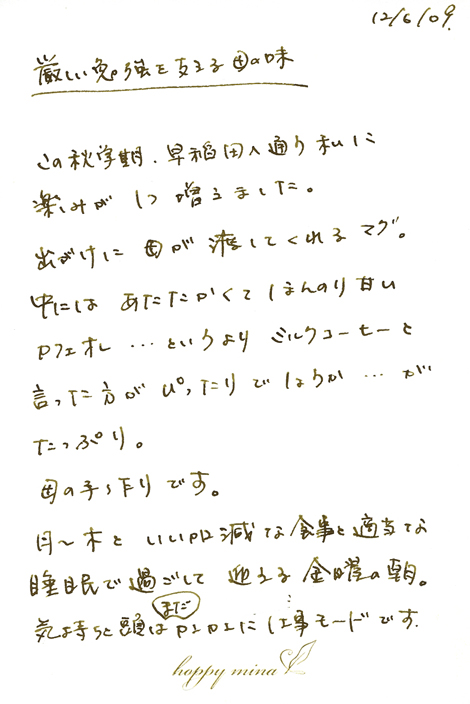 12/6/09.
厳しい勉強を支える母の味
この秋学期、早稲田へ通う私に
楽しみが1つ増えました。
出がけに母が渡してくれるマグ。
中には あたたかくてほんのり甘い
カフェオレ…というより ミルクコーヒーと
言った方がぴったりでしょうか…が
たっぷり。
母の手作りです。
月〜木といい加減な食事と適当な
睡眠で過ごして迎える金曜の朝。
まだ
気持ちと頭は に仕事モードです.
happy mina